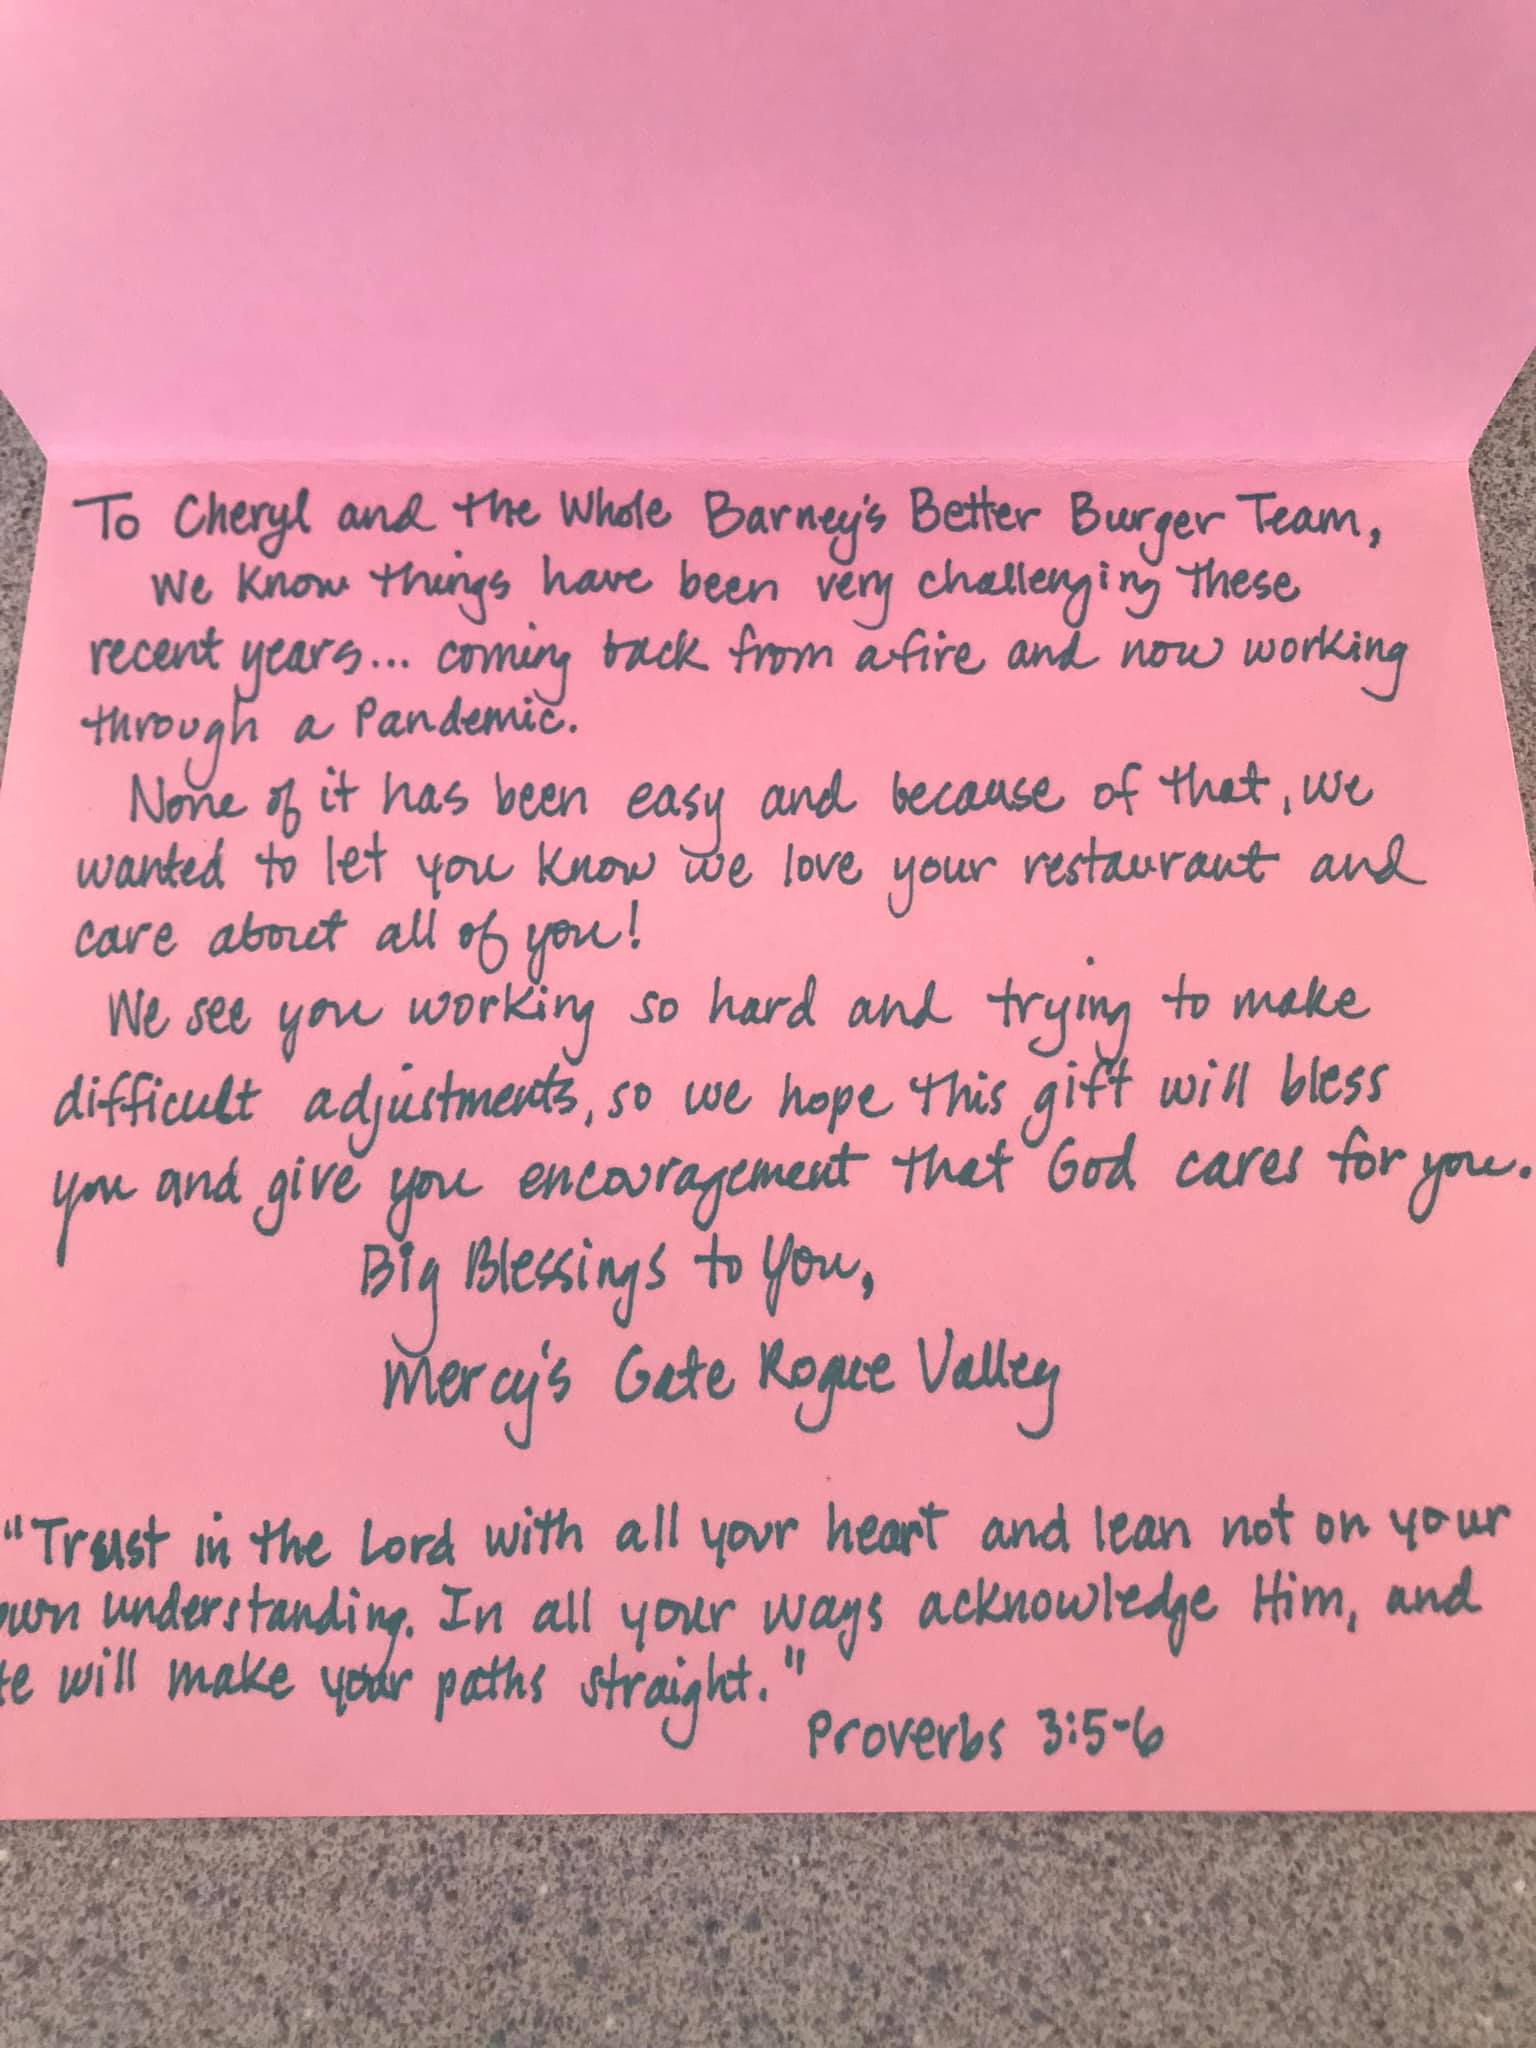 To Cheryl and the Whole Barney's Better Burger Team,
We Know things have been very challenging these
recent years... coming back from a fire and now working
through a Pandemic.
None of it has been easy and because of that, we
wanted to let you know we love your restaurant and
care about all of you!
We see you working so hard and trying to make
difficult adjustments, so we hope this gift will bless
you and give you encouragement that God cares for you.
Big Blessings to You,
Mercy's Gate Rogue Valley
"Trust in the Lord with all your heart and lean not on your
own understanding. In all your ways acknowledge Him, and
He will make your paths straight."
Proverbs 3:5-6